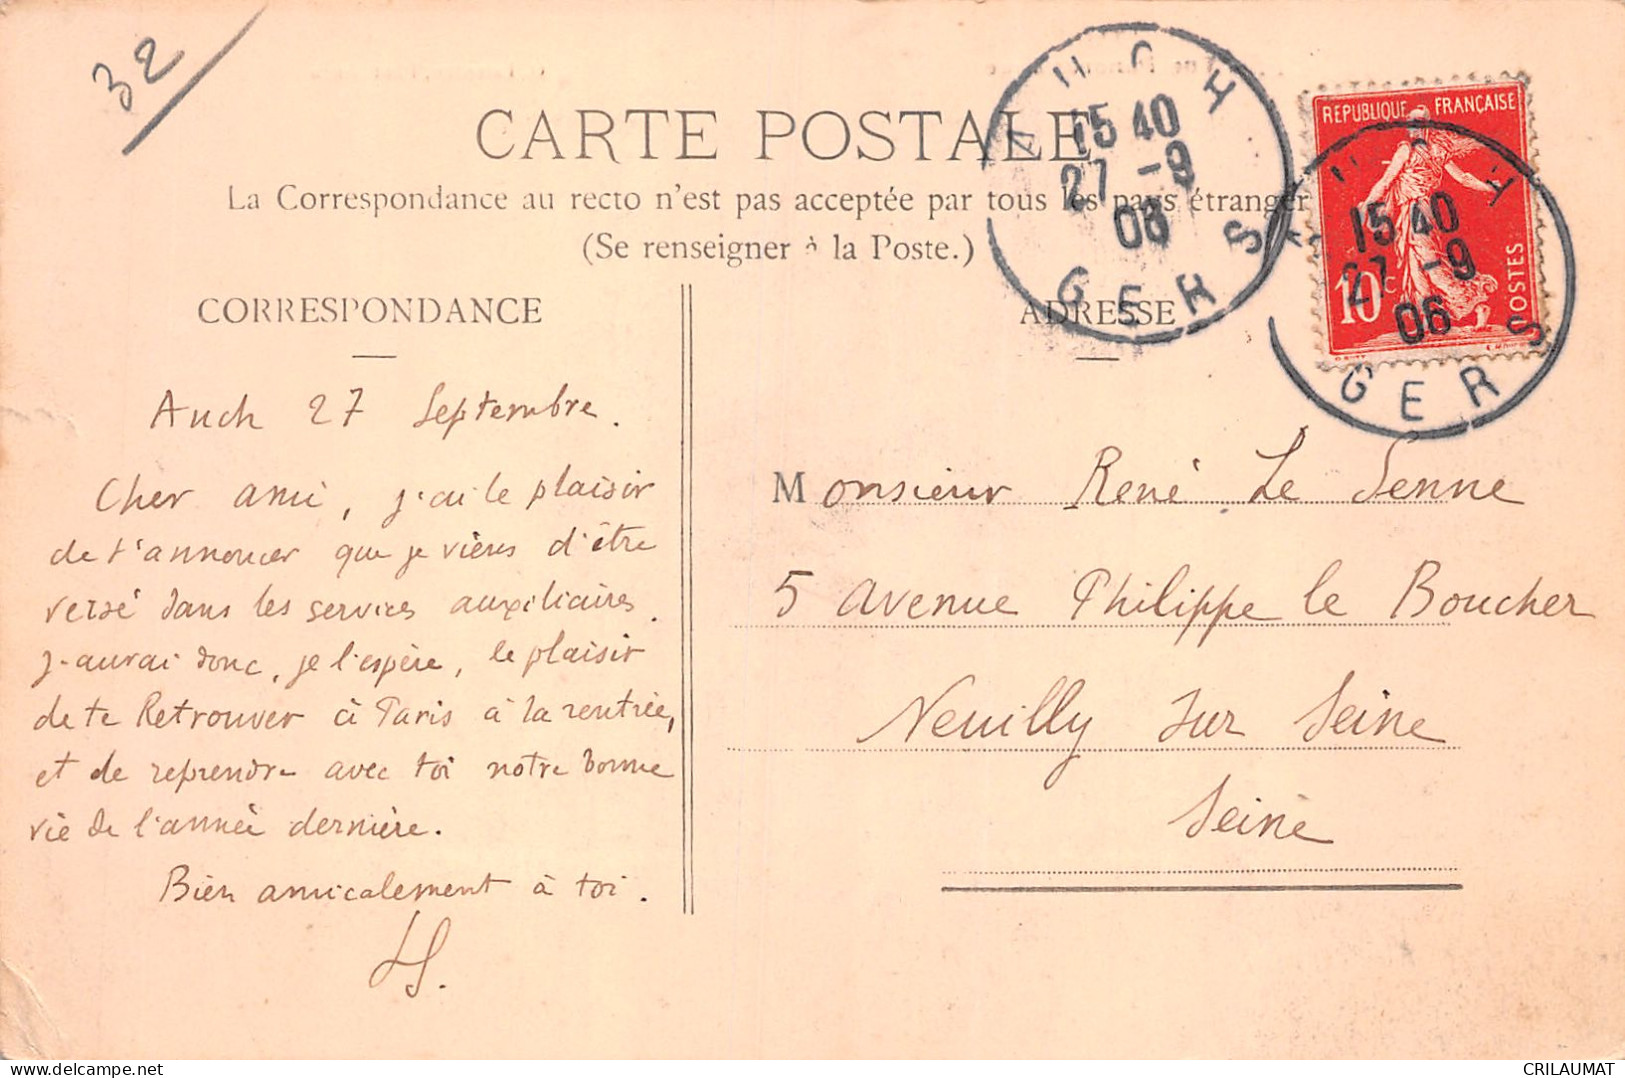 32
CARTE POSTALE
La Correspondance au recto n'est pas acceptée par tous les pays étrangers
(Se renseigner à la Poste.)
AUCH
15 40
27 -9
06
GERS
REPUBLIQUE FRANÇAISE
10 c
POSTES
AUCH
15 40
27 -9
06
GERS
CORRESPONDANCE
Auch 27 Septembre.
Cher ami, j'ai le plaisir
de t'annoncer que je viens d'être
versé dans les services auxiliaires.
J'aurai donc, je l'espère, le plaisir
de te Retrouver à Paris à la rentrée,
et de reprendre avec toi notre bonne
vie de l'année dernière.
Bien amicalement à toi.
ADRESSE
Monsieur René Le Senne
5 avenue Philippe le Boucher
Neuilly sur Seine
Seine
CRILAUMAT